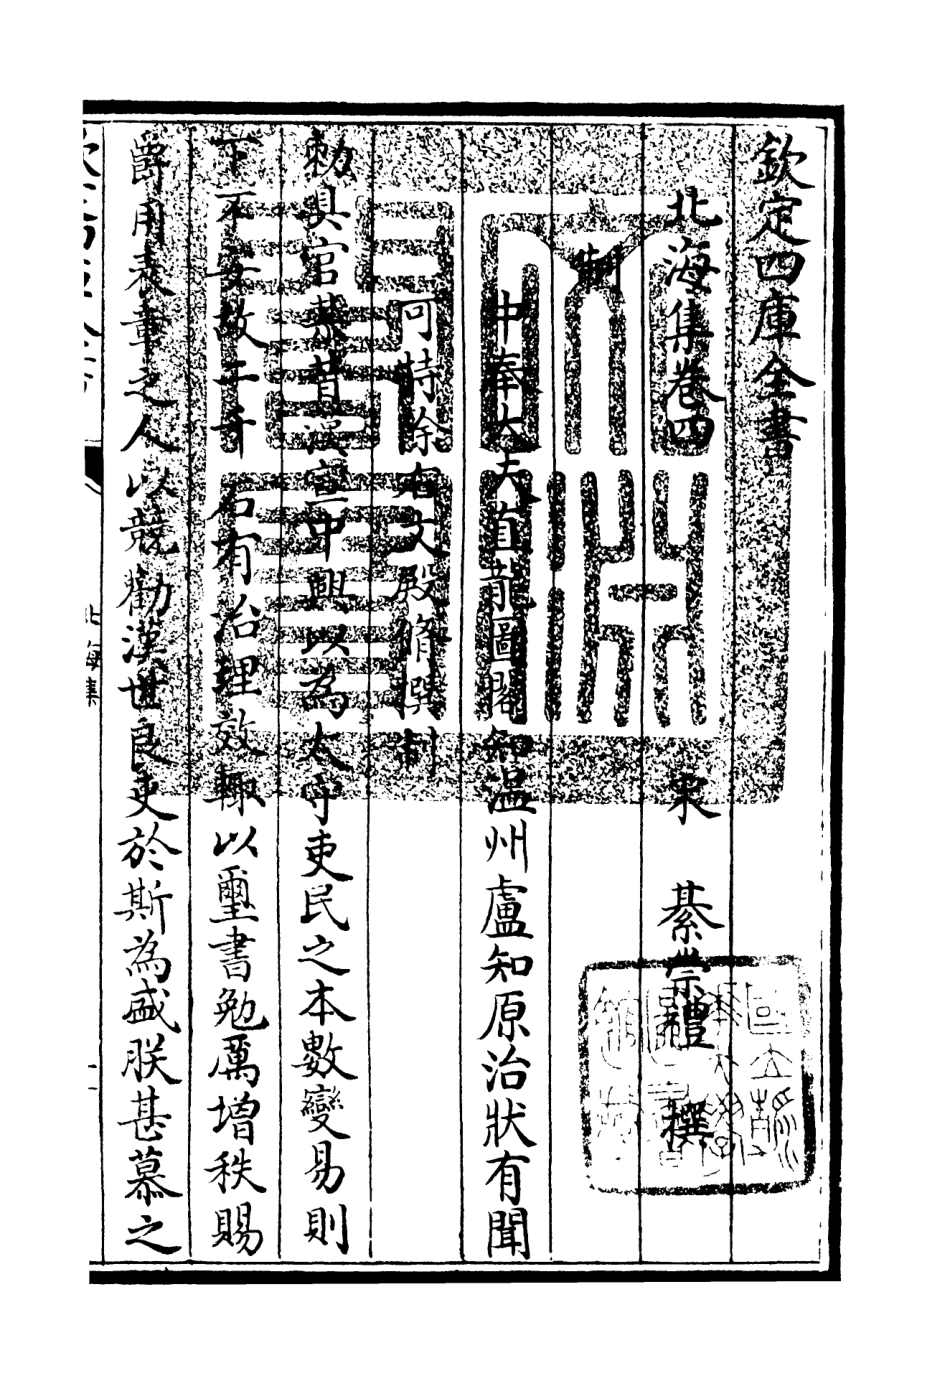 欽定四庫全書
北海集卷四
宋 綦崇禮 撰
制
中奉大夫直龍圖閣知温州盧知原治狀有聞
可特除右文殿脩撰制
勅具官某昔漢宣中興以為太守吏民之本數變易則
下不安故二千石有治理效輒以璽書勉厲增秩賜
爵用表章之人以競勸漢世良吏於斯為盛朕甚慕之
北海集